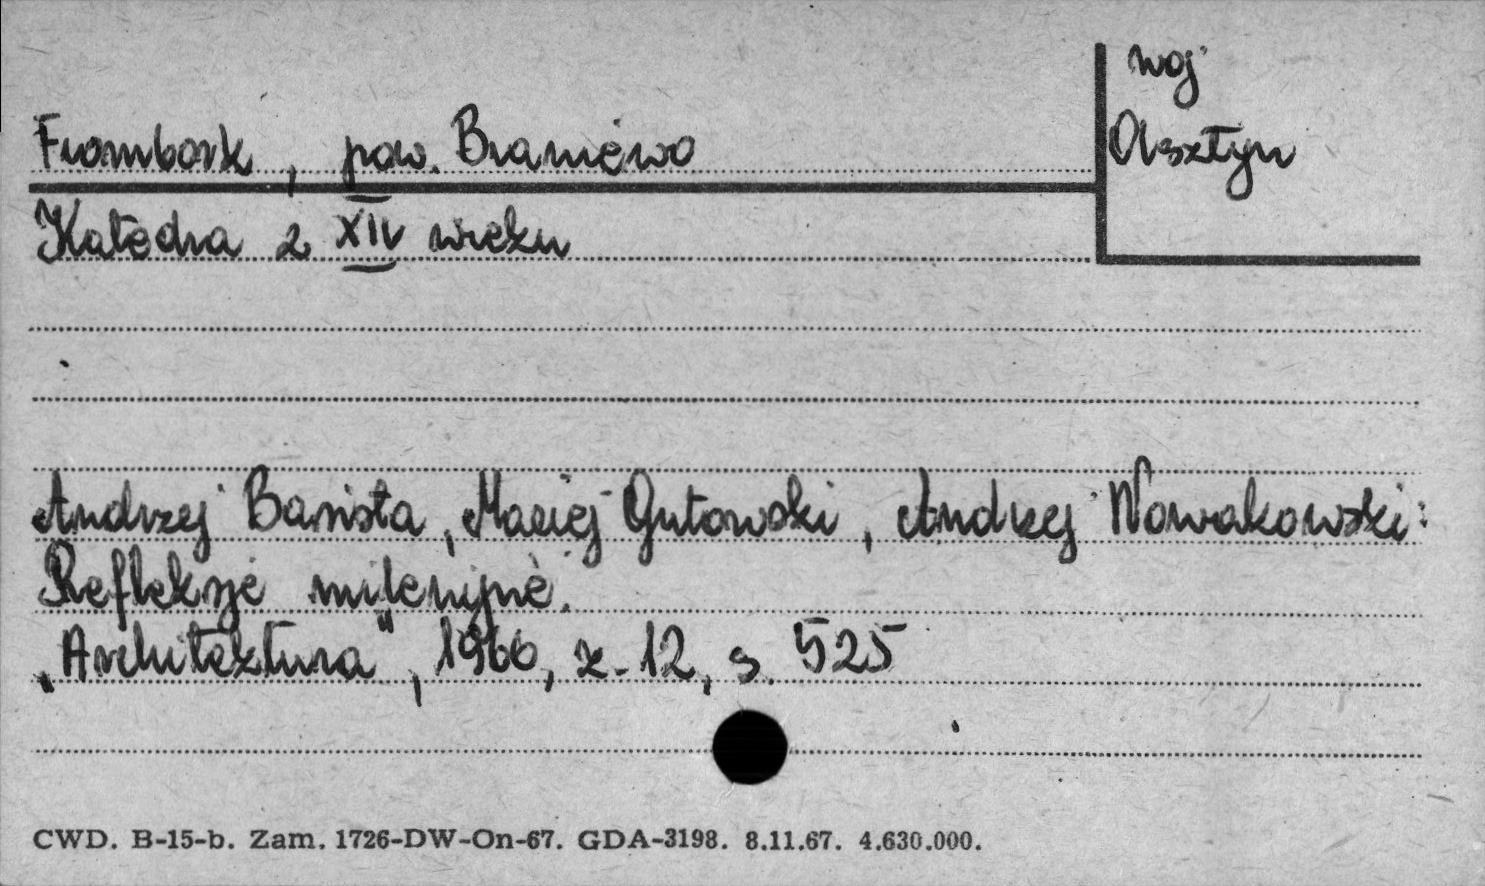 woj
Olsztyn
Frombork, pow. Braniewo
Katedra z XIV wieku
Andrzej Basista, Maciej Gutowski, Andrzej Nowakowski:
Refleksje milenijne.
„Architektura", 1966, z. 12, s. 525
CWD. B-15-b. Zam. 1726-DW-On-67. GDA-3198. 8.11.67. 4.630.000.